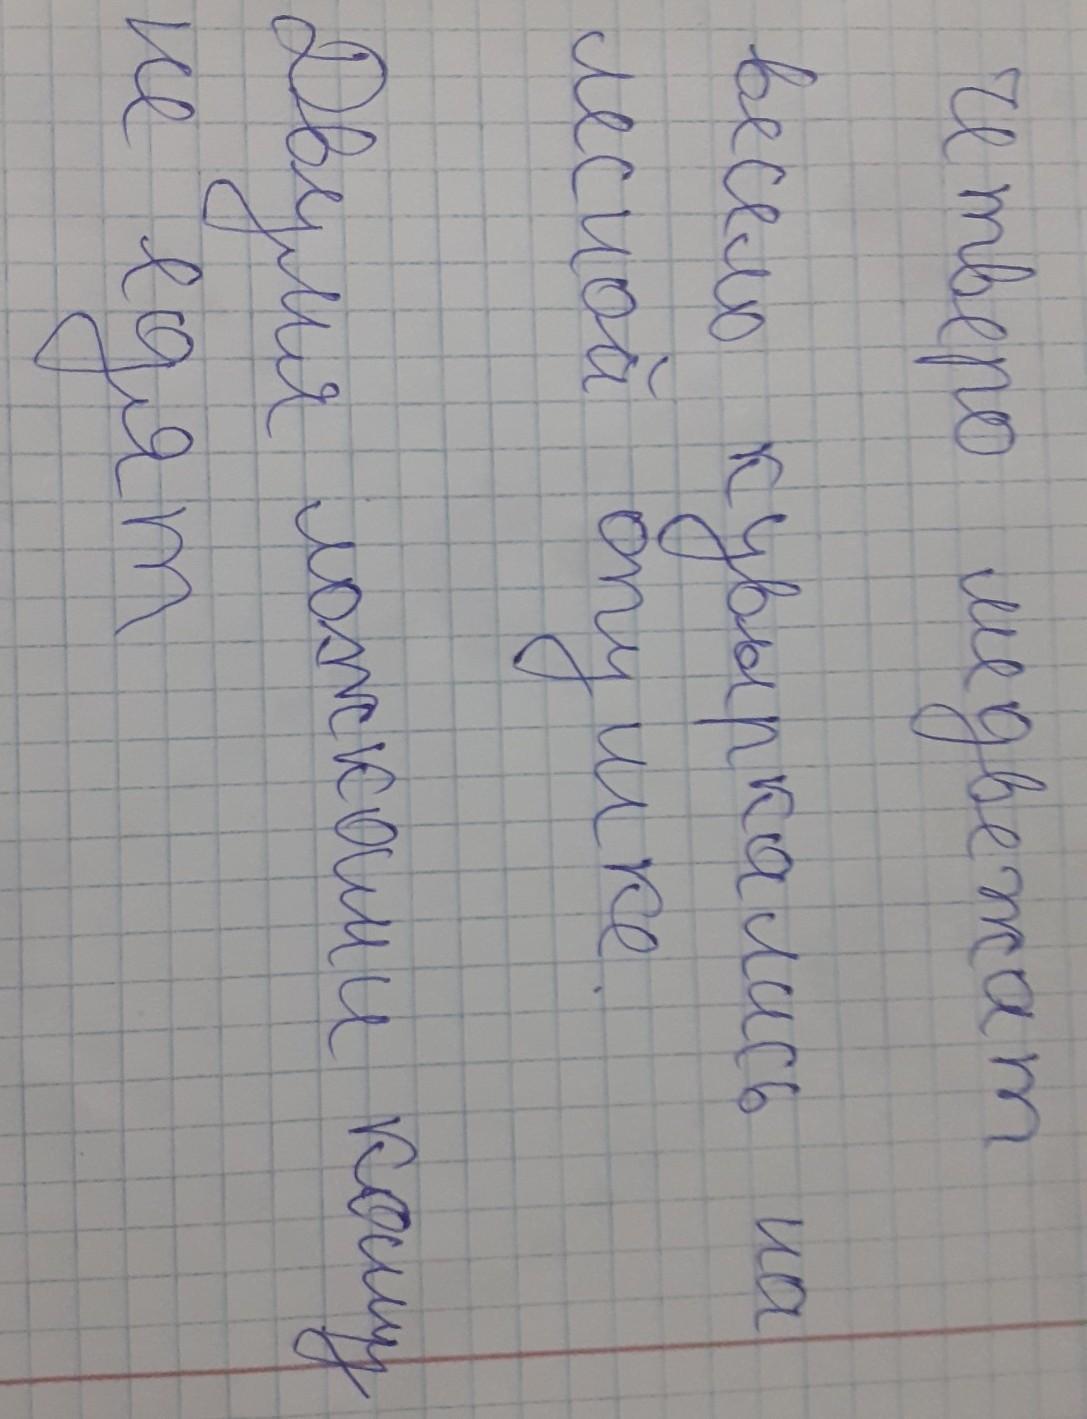 Четверо медвежат
весело кувыркались на
лесной опушке.
Двумя ложками кашу
не едят